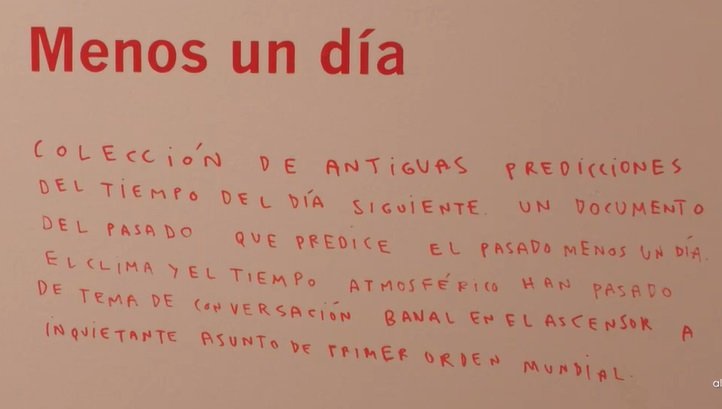 Menos un día
COLECCIÓN DE ANTIGUAS PREDICCIONES
DEL TIEMPO DEL DÍA SIGUIENTE. UN DOCUMENTO
DEL PASADO QUE PREDICE EL PASADO MENOS UN DÍA.
EL CLIMA Y EL TIEMPO ATMOSFÉRICO HAN PASADO
DE TEMA DE CONVERSACIÓN BANAL EN EL ASCENSOR A
INQUIETANTE ASUNTO DE PRIMER ORDEN MUNDIAL.
al